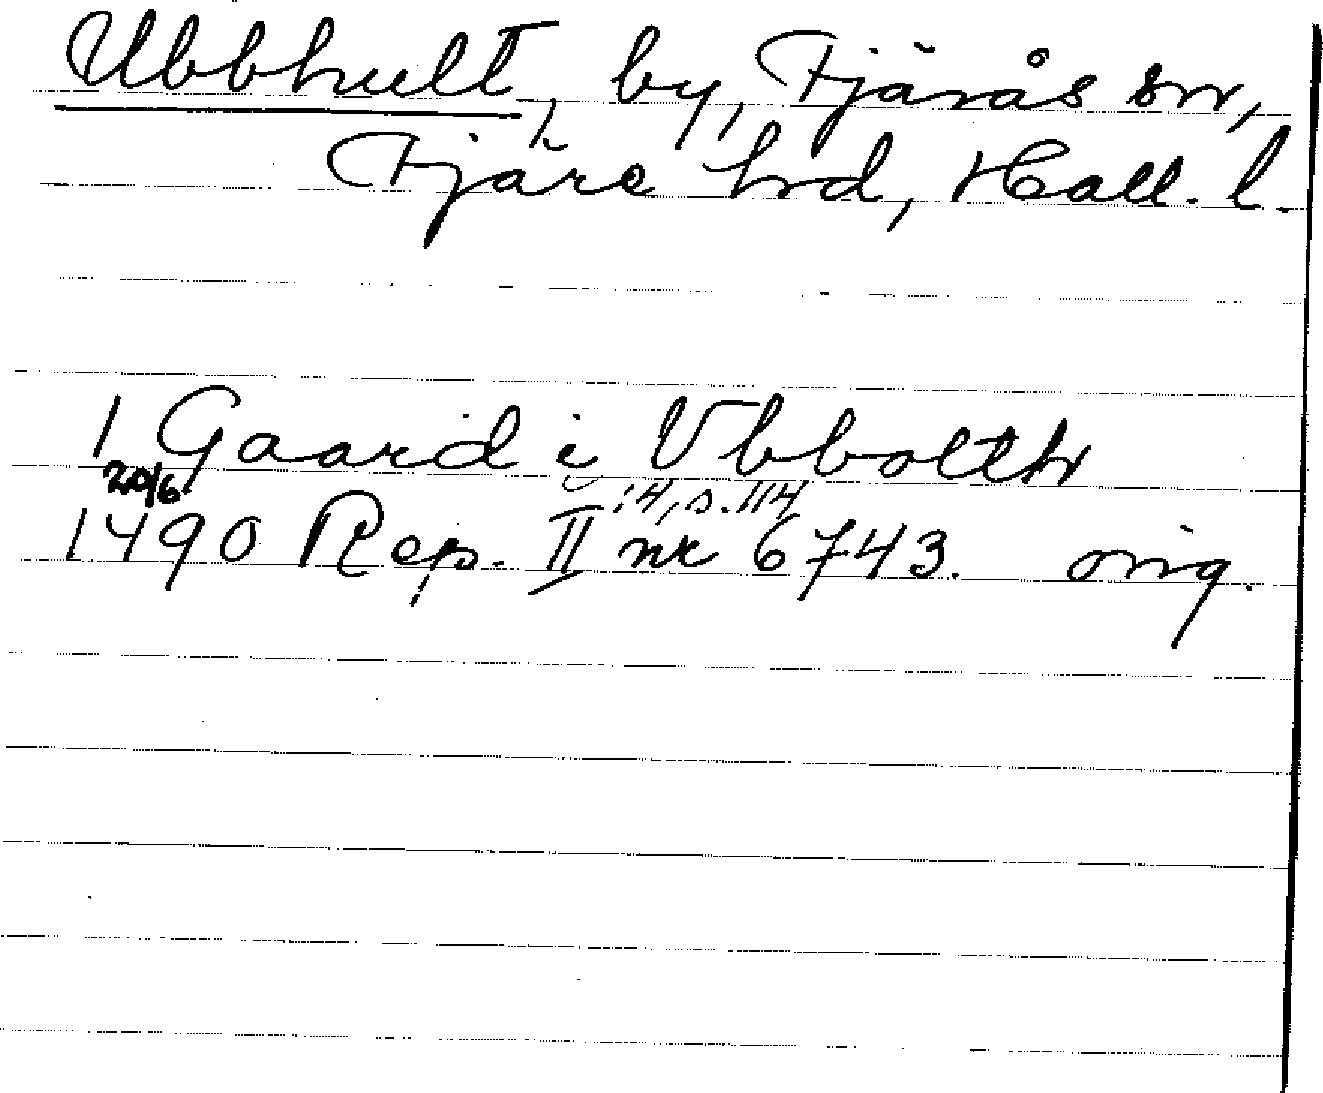 Ubbhult, by, Fjärås sn,
Fjäre hd, Hall. l.
1 Gaard i Vbbolth
20/6
:4, s. 114
1490 Rep. II nr 6743. orig.